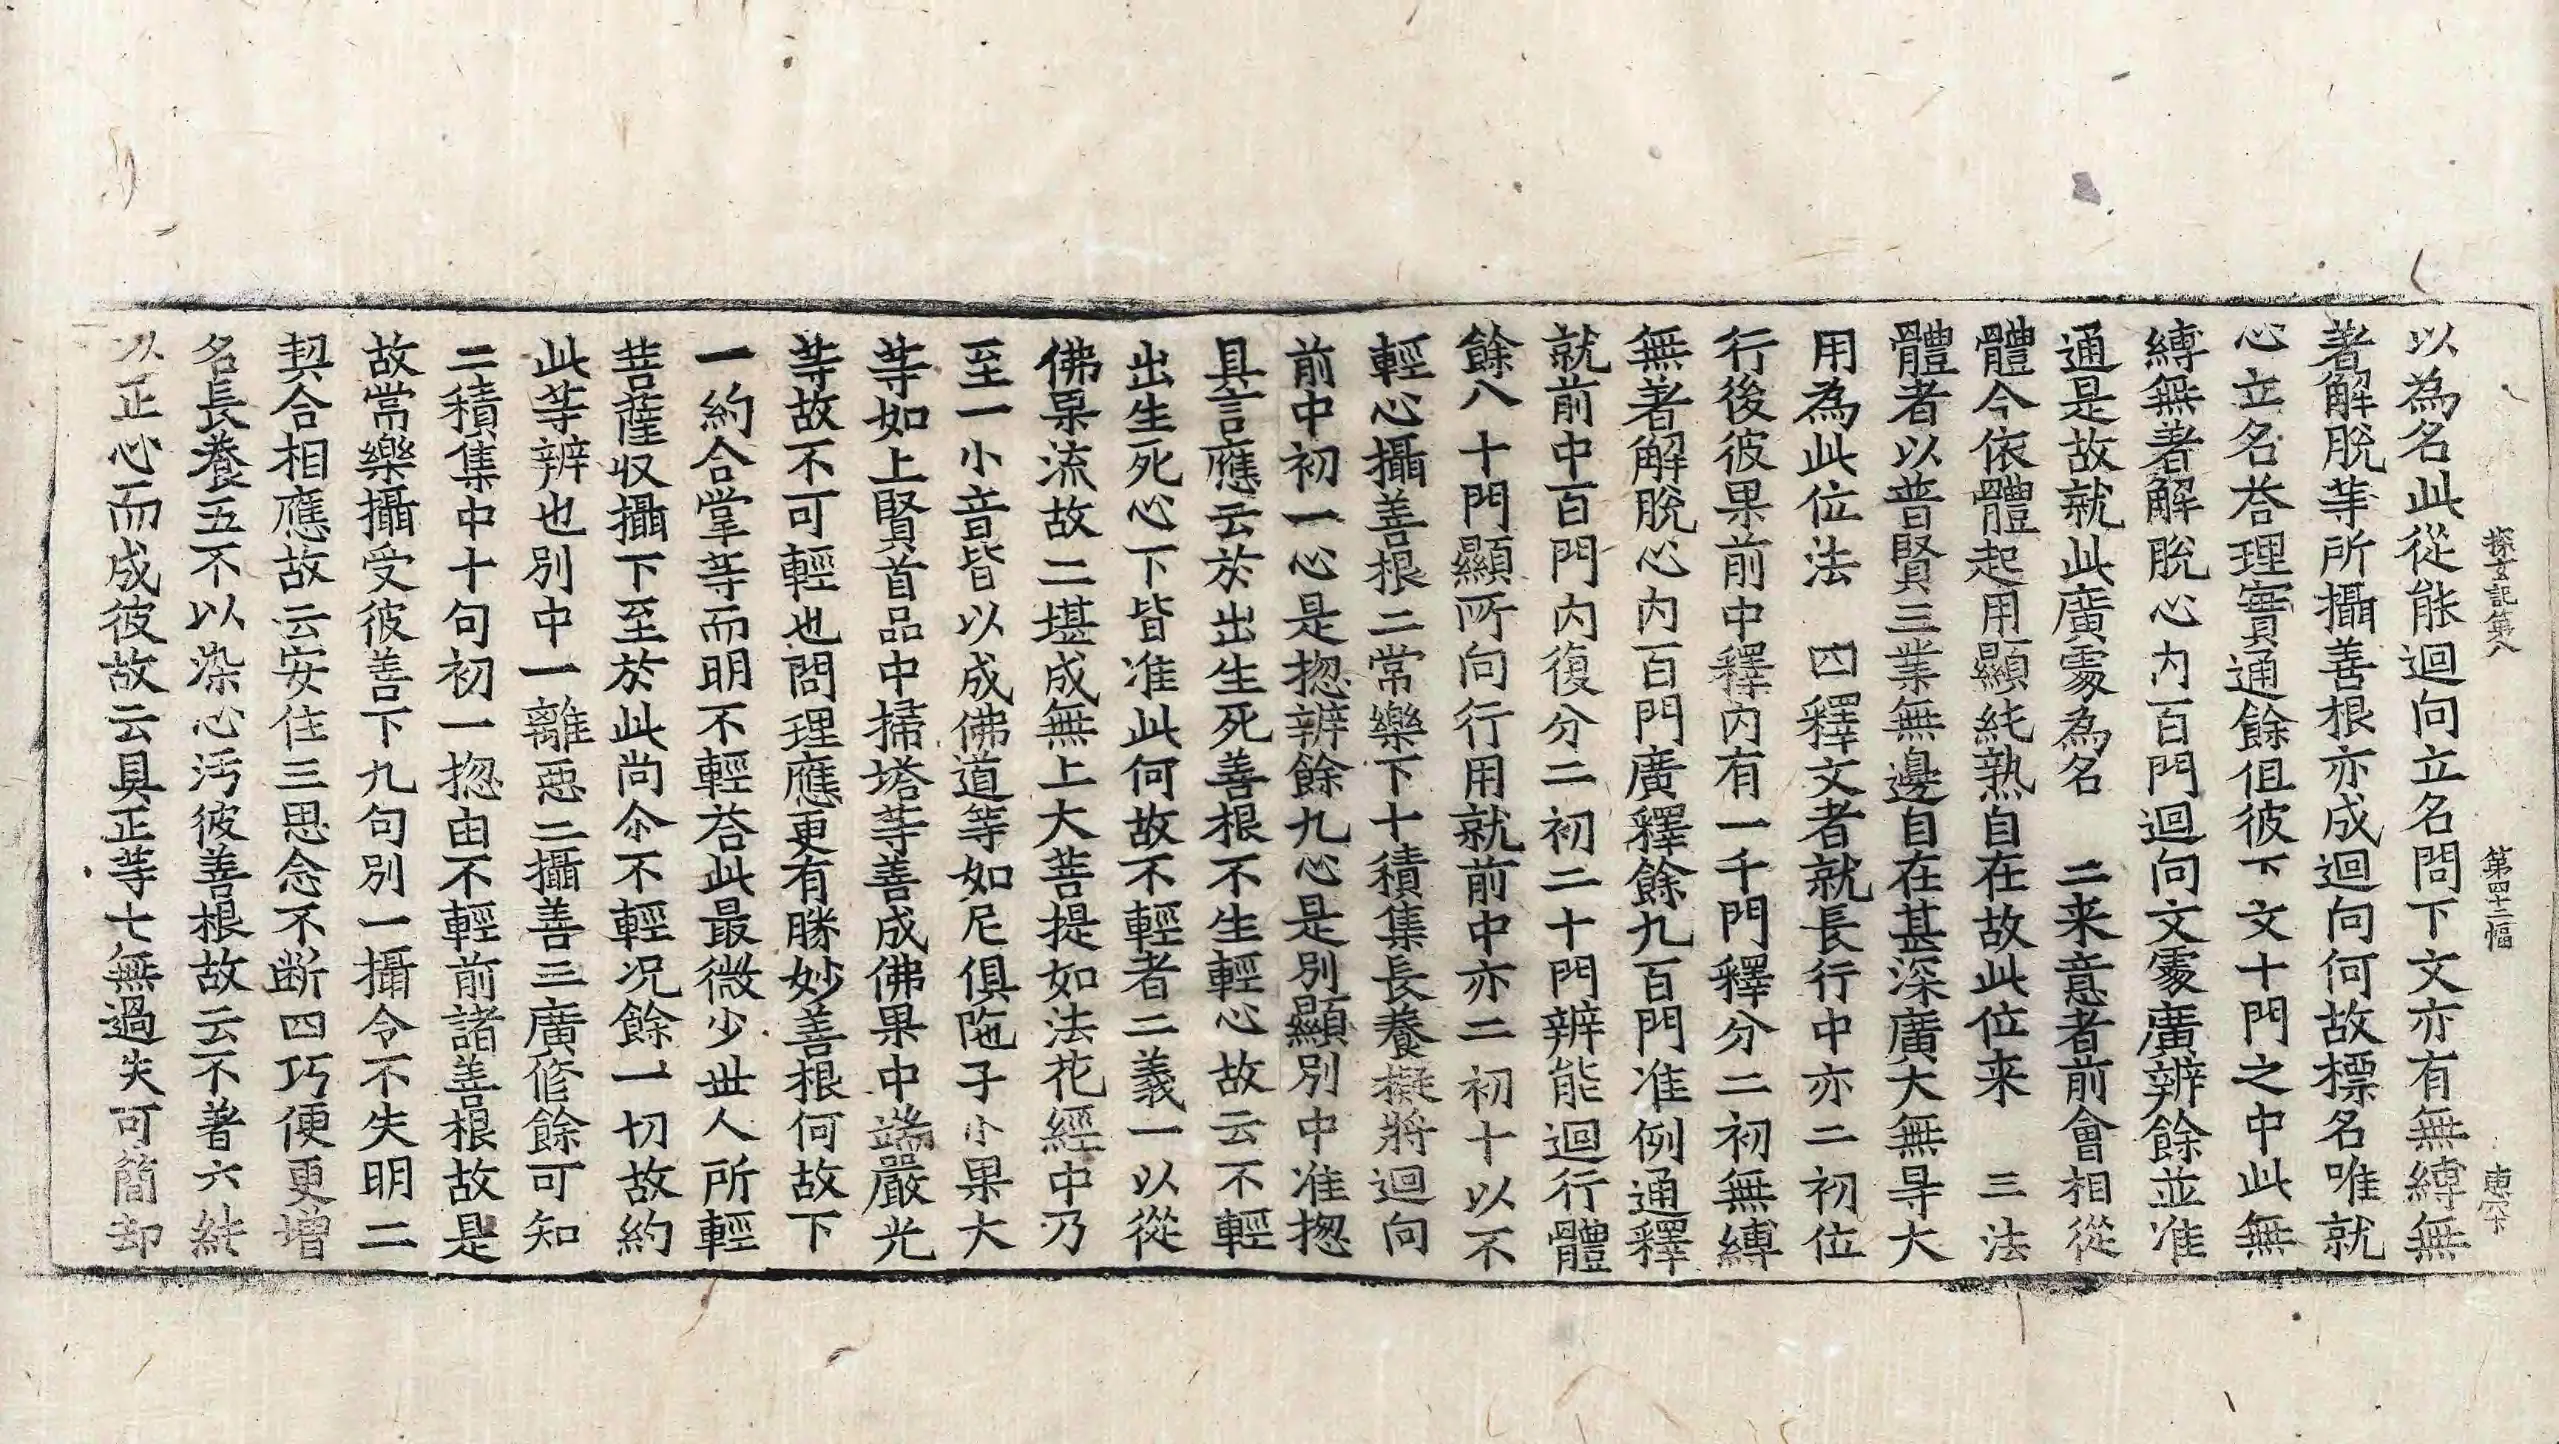 探玄記第八 第四十二幅 庶下
以為名此從能迴向立名問下文亦有無縛無
著解脫等所攝善根亦成迴向何故標名唯就
心立名荅理實通餘但彼下文十門之中此無
縛無著解脫心內百門迴向文處廣辨餘並准
通是故就此廣處為名 二来意者前會相從
體今依體起用顯純熟自在故此位来 三法
體者以普賢三業無邊自在甚深廣大無㝵大
用為此位法 四釋文者就長行中亦二初位
行後彼果前中釋內有一千門釋分二初無縛
無著解脫心內百門廣釋餘九百門准例通釋
就前中百門內復分二初二十門辨能迴行體
餘八十門顯所向行用就前中亦二初十以不
輕心攝善根二常樂下十積集長養擬將迴向
前中初一心是揔辨餘九心是別顯別中准揔
具言應云於出生死善根不生輕心故云不輕
出生死心下皆准此何故不輕者二義一以從
佛果流故二堪成無上大菩提如法花經中乃
至一小音皆以成佛道等如尼俱陁子小果大
等如上賢首品中掃塔等善成佛果中端嚴光
等故不可輕也問理應更有勝妙善根何故下
一約合掌等而明不輕荅此最微少世人所輕
菩薩収攝下至於此尚尒不輕况餘一切故約
此等辨也別中一離惡二攝善三廣修餘可知
二積集中十句初一揔由不輕前諸善根故是
故常樂攝受彼善下九句別一攝令不失明二
契合相應故云安住三思念不断四巧便更增
名長養五不以染心汚彼善根故云不著六純
以正心而成彼故云具正等七無過失可簡却